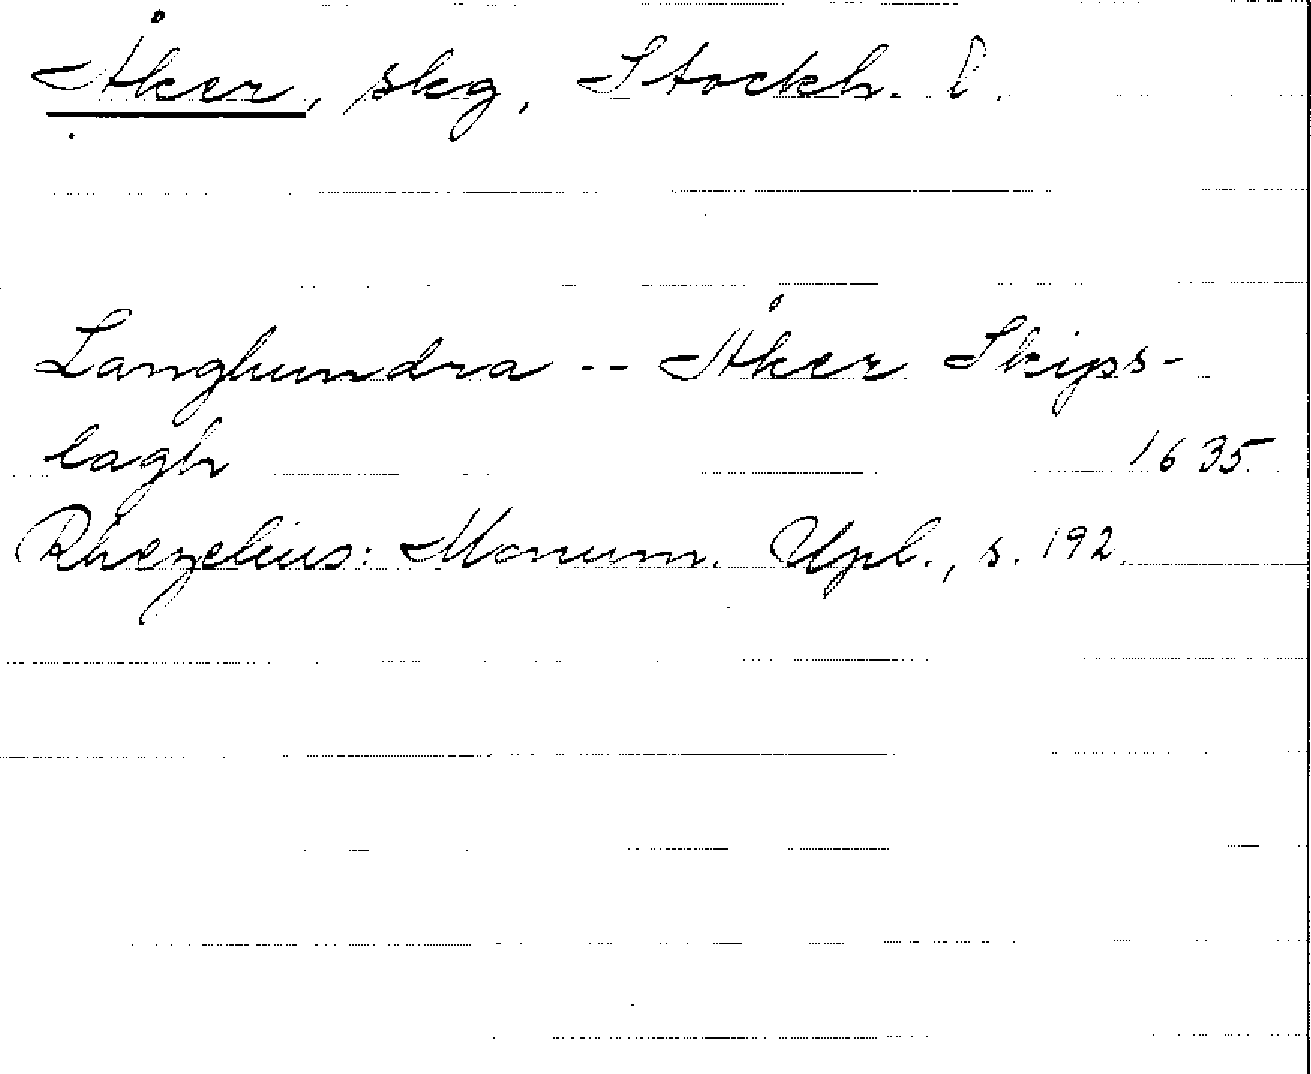 Åker, skg, Stockh. l.
Langhundra -- Åker Skips-
lagh 1635
Rhezelius: Monum. Upl., s. 192